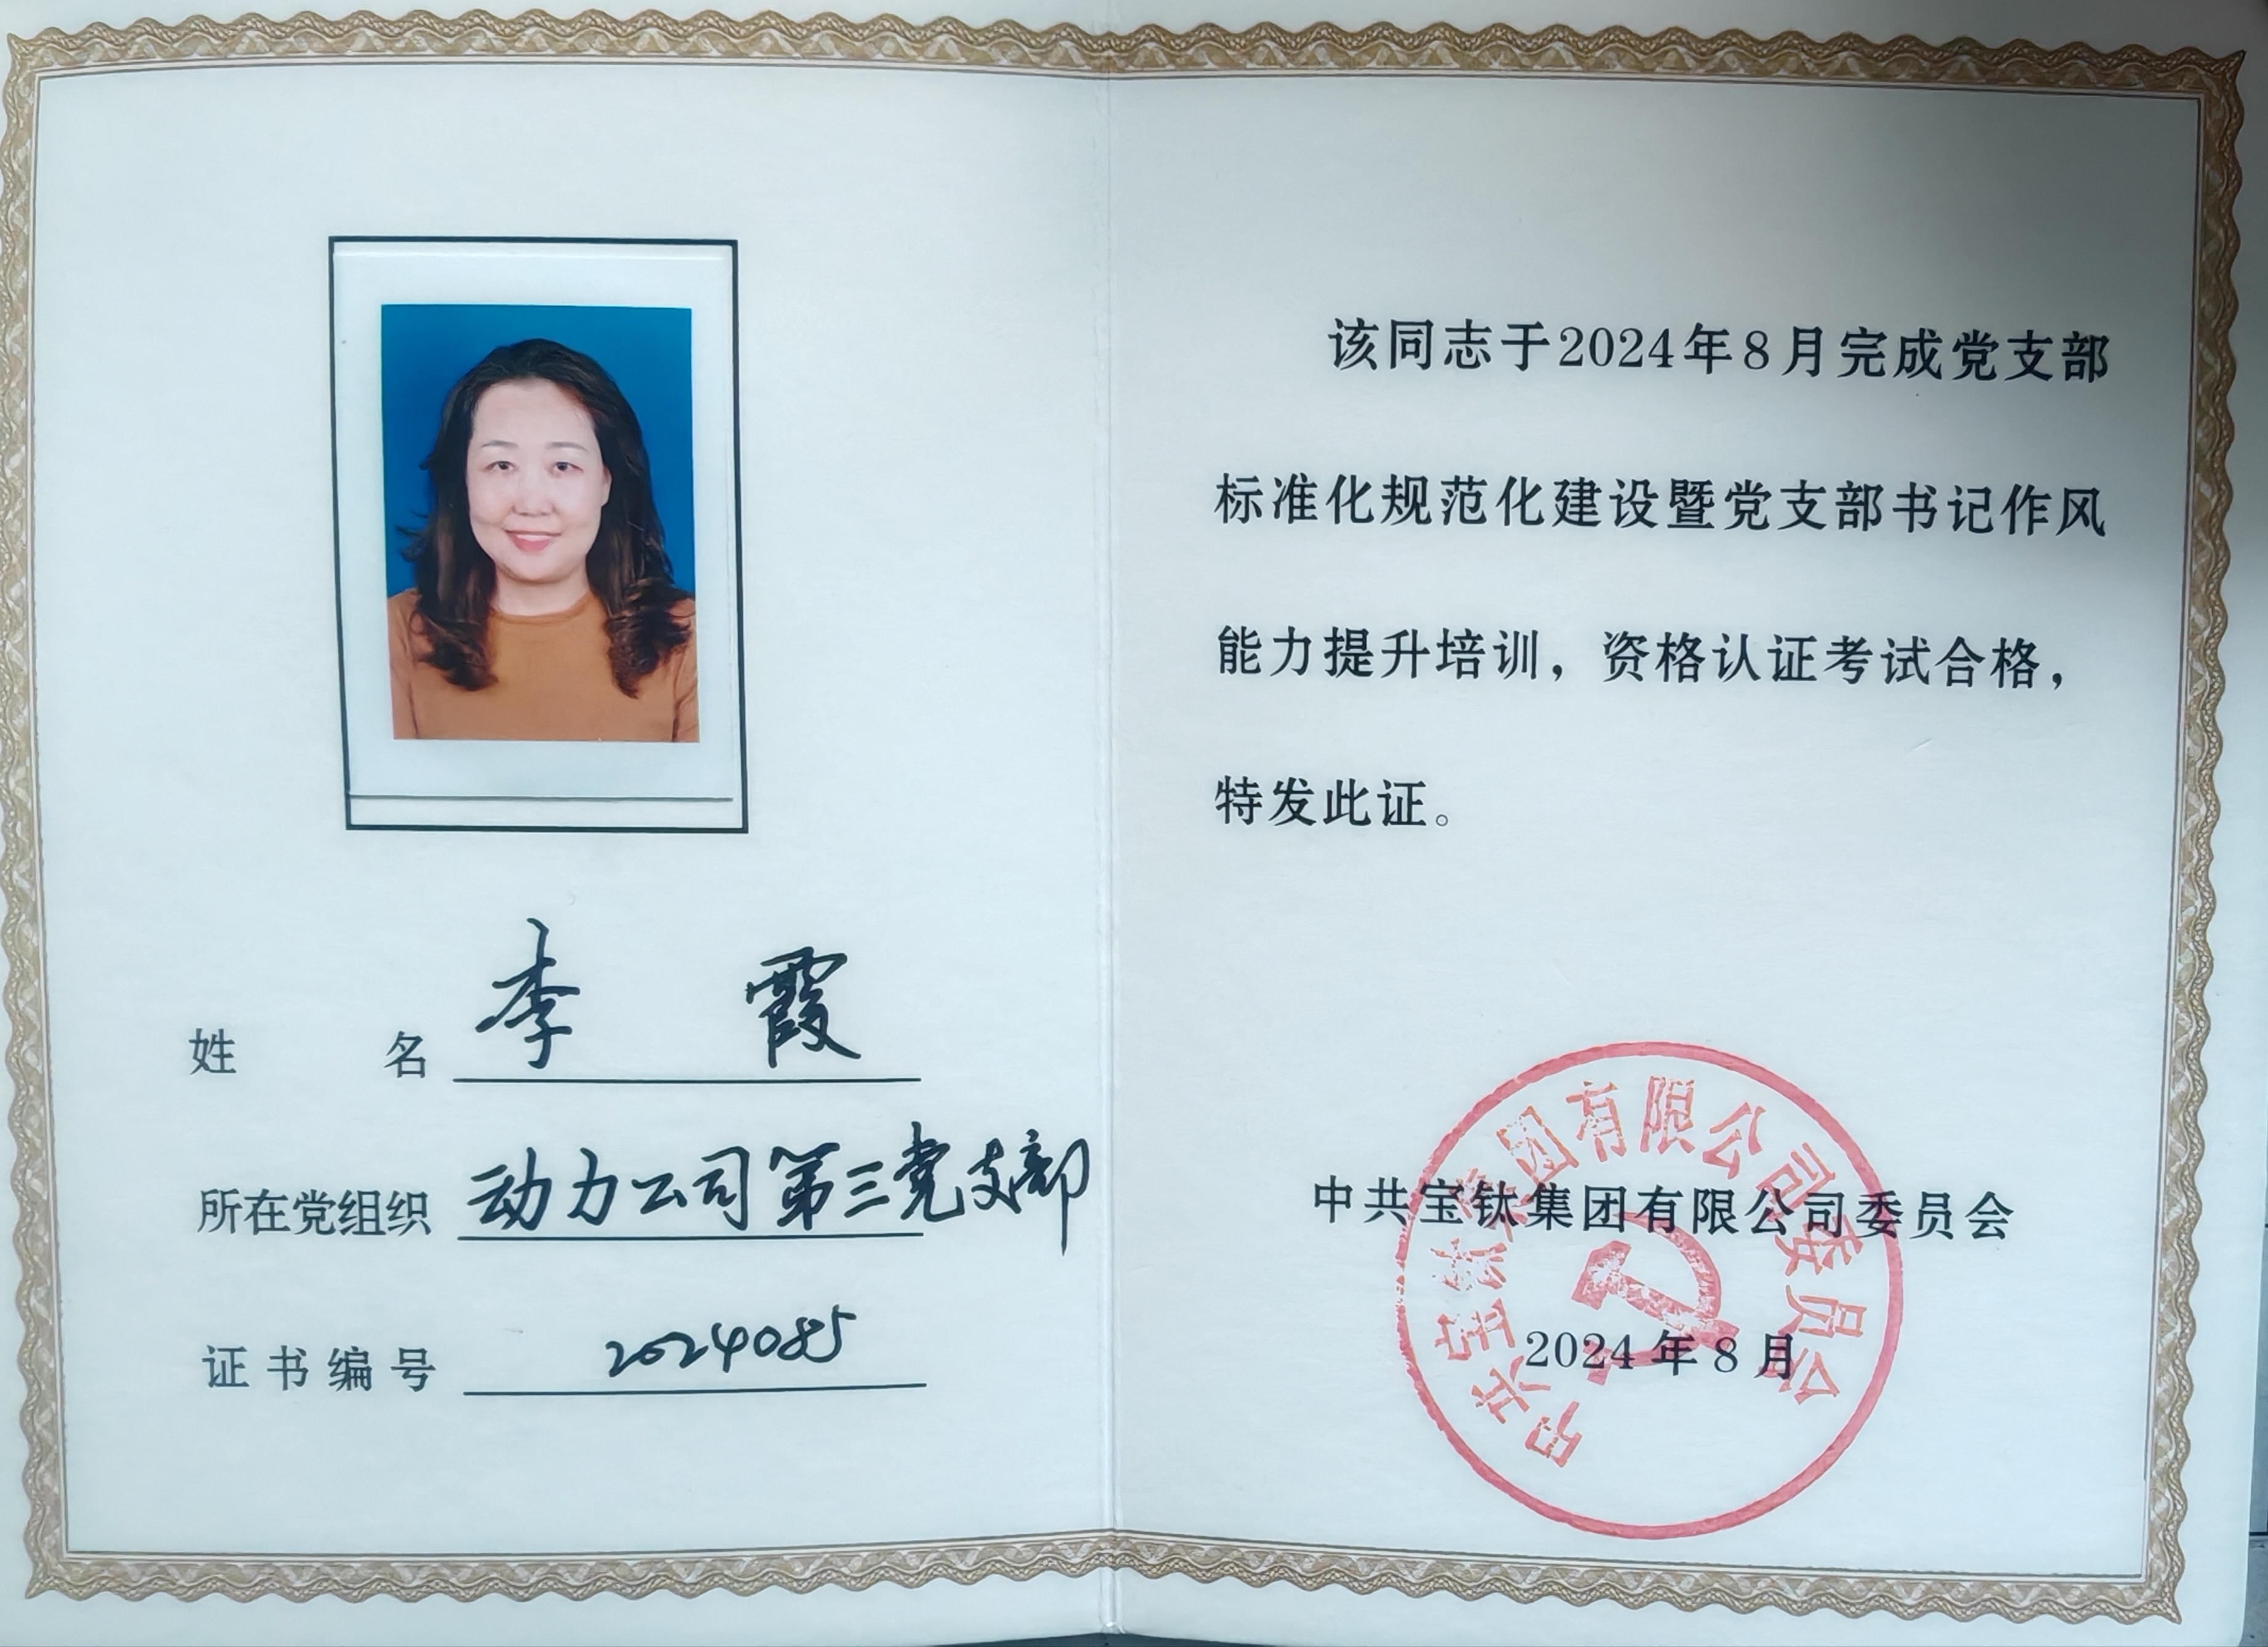 姓名 李霞
所在党组织 动力公司第三党支部
证书编号 2024085
该同志于2024年8月完成党支部
标准化规范化建设暨党支部书记作风
能力提升培训，资格认证考试合格，
特发此证。
中共宝钛集团有限公司委员会
2024年8月
中共宝钛集团有限公司委员会